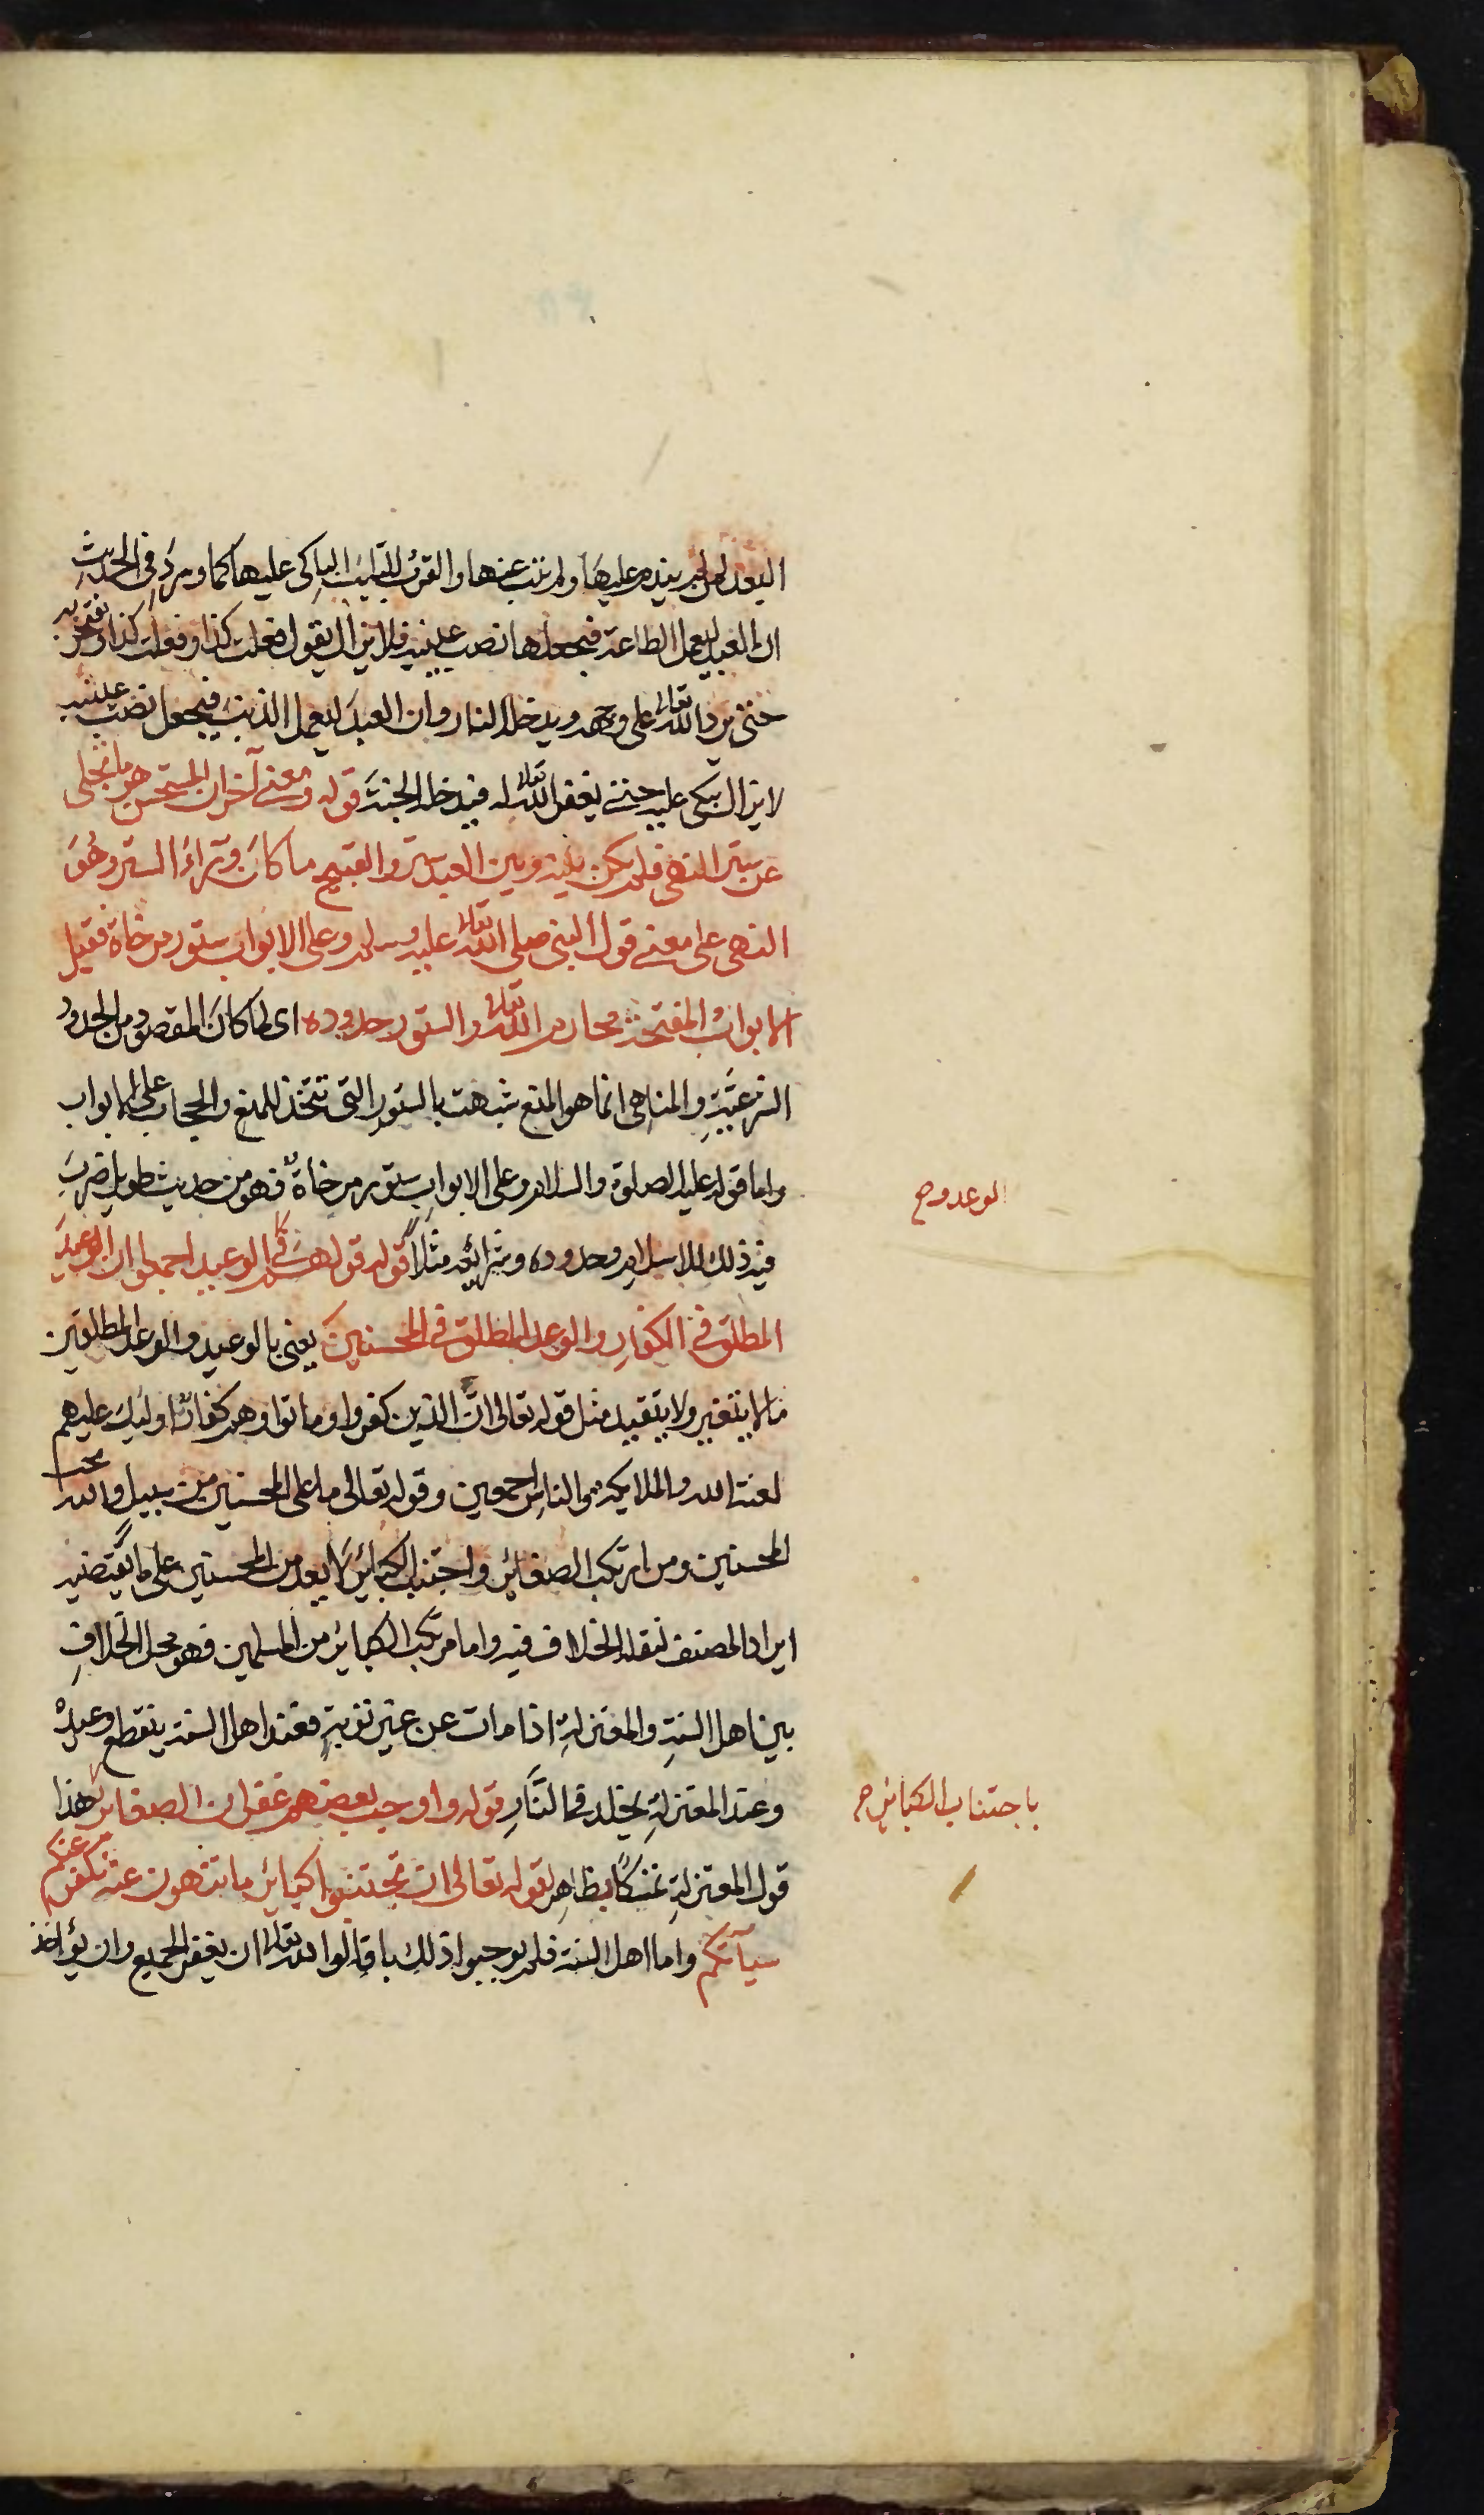 البعد لمن لم يندم عليها ولم يتب عنها والقرب للتايب الباكى عليها كما ورد فى الحديث
ان العبد ليعمل الطاعة فيجعلها نصب عينيه فلا يزال يقول فعلت كذا وفعلت كذا ويفتخر به
حتى يرد الله تعالى على وجهه ويدخله النار وان العبد ليعمل الذنب فيجعل نصب عينيه
لا يزال يبكى عليه حتى يغفر الله تعالى له فيدخله الجنة قوله ومعنى آخر ان المستحسن هو ما تجلى
عن ستر النهى فلم يكن بينه وبين العبد ستر والقبيح ما كان وراء الستر وهو
النهى على معنى قول النبى صلى الله تعالى عليه وسلم وعلى الابواب ستور مرخاة فقيل
الابواب المفتحة محارم الله تعالى والستور حدوده اى لما كان المقصود من الحدود
الشرعية والمناهى انما هو المنع شبهت بالستور التى تتخذ للمنع والحجاب على الابواب
واما قوله عليه الصلوة والسلام وعلى الابواب ستور مرخاة فهو من حديث طويل ضرب
فيه ذلك للاسلام وحدوده وشرائعه مثلا قوله قولهم فى الوعيد اجمعوا ان الوعيد
المطلق فى الكفار والوعد المطلق فى المحسنين يعنى بالوعيد والوعد المطلقين
ما لا يتغير ولا يتقيد مثل قوله تعالى ان الذين كفروا وماتوا وهم كفار اوليك عليهم
لعنة الله والملايكة والناس اجمعين وقوله تعالى ما على المحسنين من سبيل والله يحب
المحسنين ومن ارتكب الصغائر واجتنب الكبائر لا يعد من المحسنين على ما يقتضيه
ايراد المصنف لنقله الخلاف فيه واما مرتكب الكبائر من المسلمين فهو محل الخلاف
بين اهل السنة والمعتزلة اذا مات عن غير توبة فعند اهل السنة ينقطع وعيده
وعند المعتزلة يخلد فى النار قوله واوجب بعضهم غفران الصغائر هذا
قول المعتزلة تمسكا بظاهر قوله تعالى ان تجتنبوا كبائر ما تنهون عنه نكفر عنكم
سيآتكم واما اهل السنة فلم يوجبوا ذلك بل قالوا لله تعالى ان يغفر الجميع وان يؤاخذ
الوعد و صح
باجتناب الكبائر